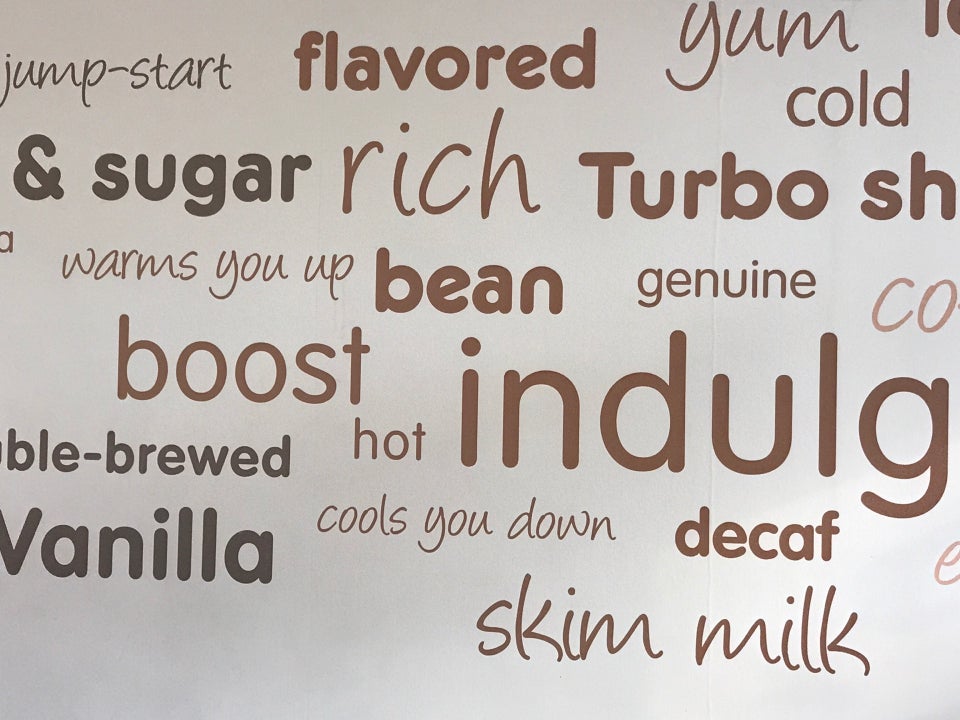 jump-start flavored yum
cold
& sugar rich Turbo sh
a warms you up bean genuine co
boost indulg
uble-brewed hot
Vanilla cools you down decaf e
skim milk